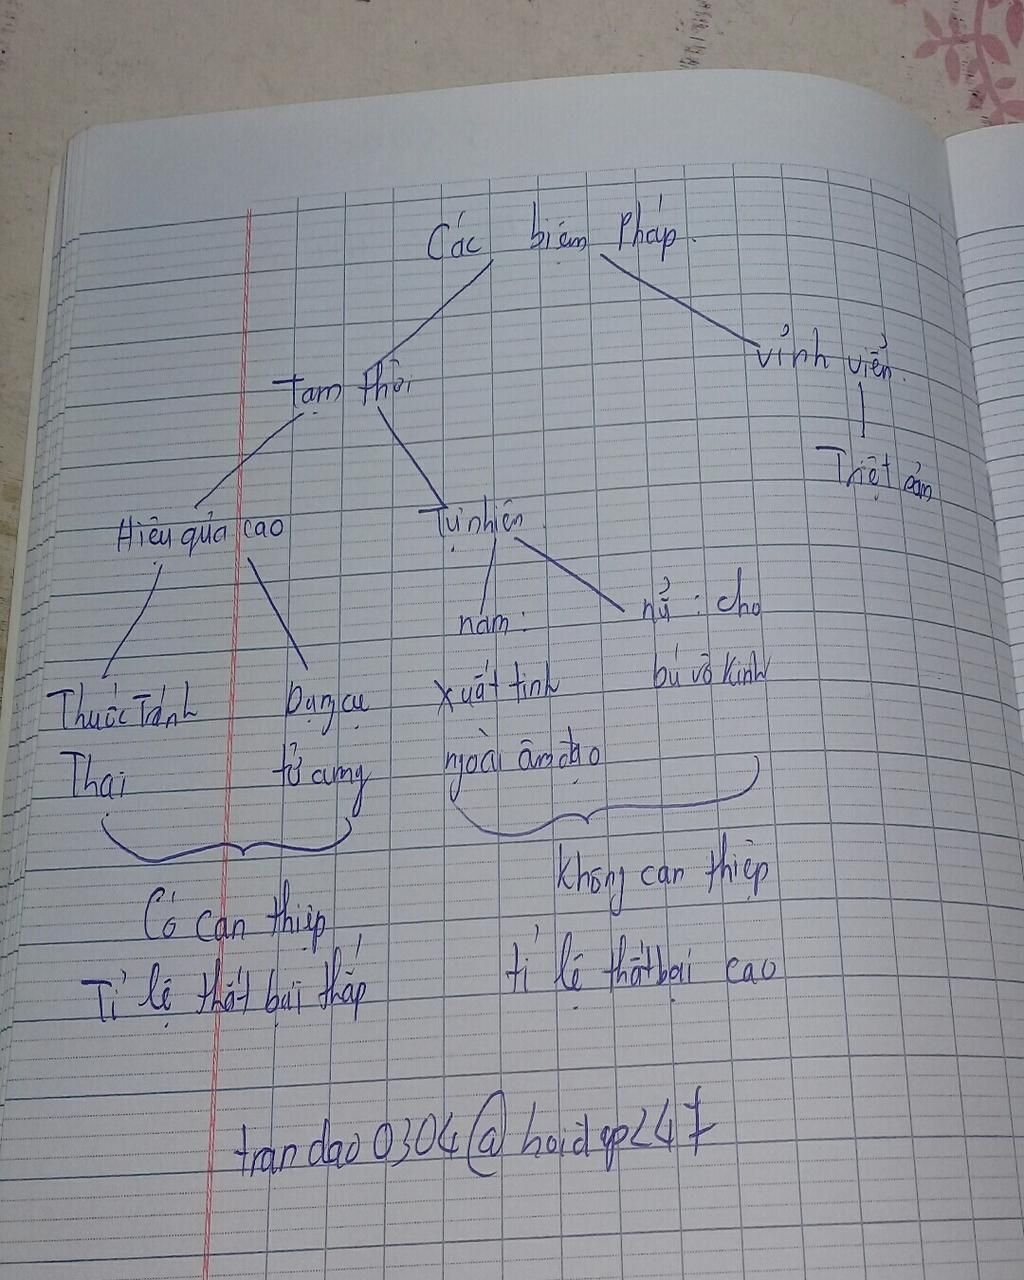 Các biện Pháp.
Tạm thời
vỉnh viển.
Triệt sản
Hiệu quả cao
Tự nhiên
nam:
nử: cho
Thuốc Tránh
Dụng cụ
xuất tinh
bú vô kinh
Thai
tử cung
ngoài âm đạo
Có can thiệp
không can thiệp
Tỉ lệ thất bại thấp
tỉ lệ thất bại cao
trandao0304@hoidap247